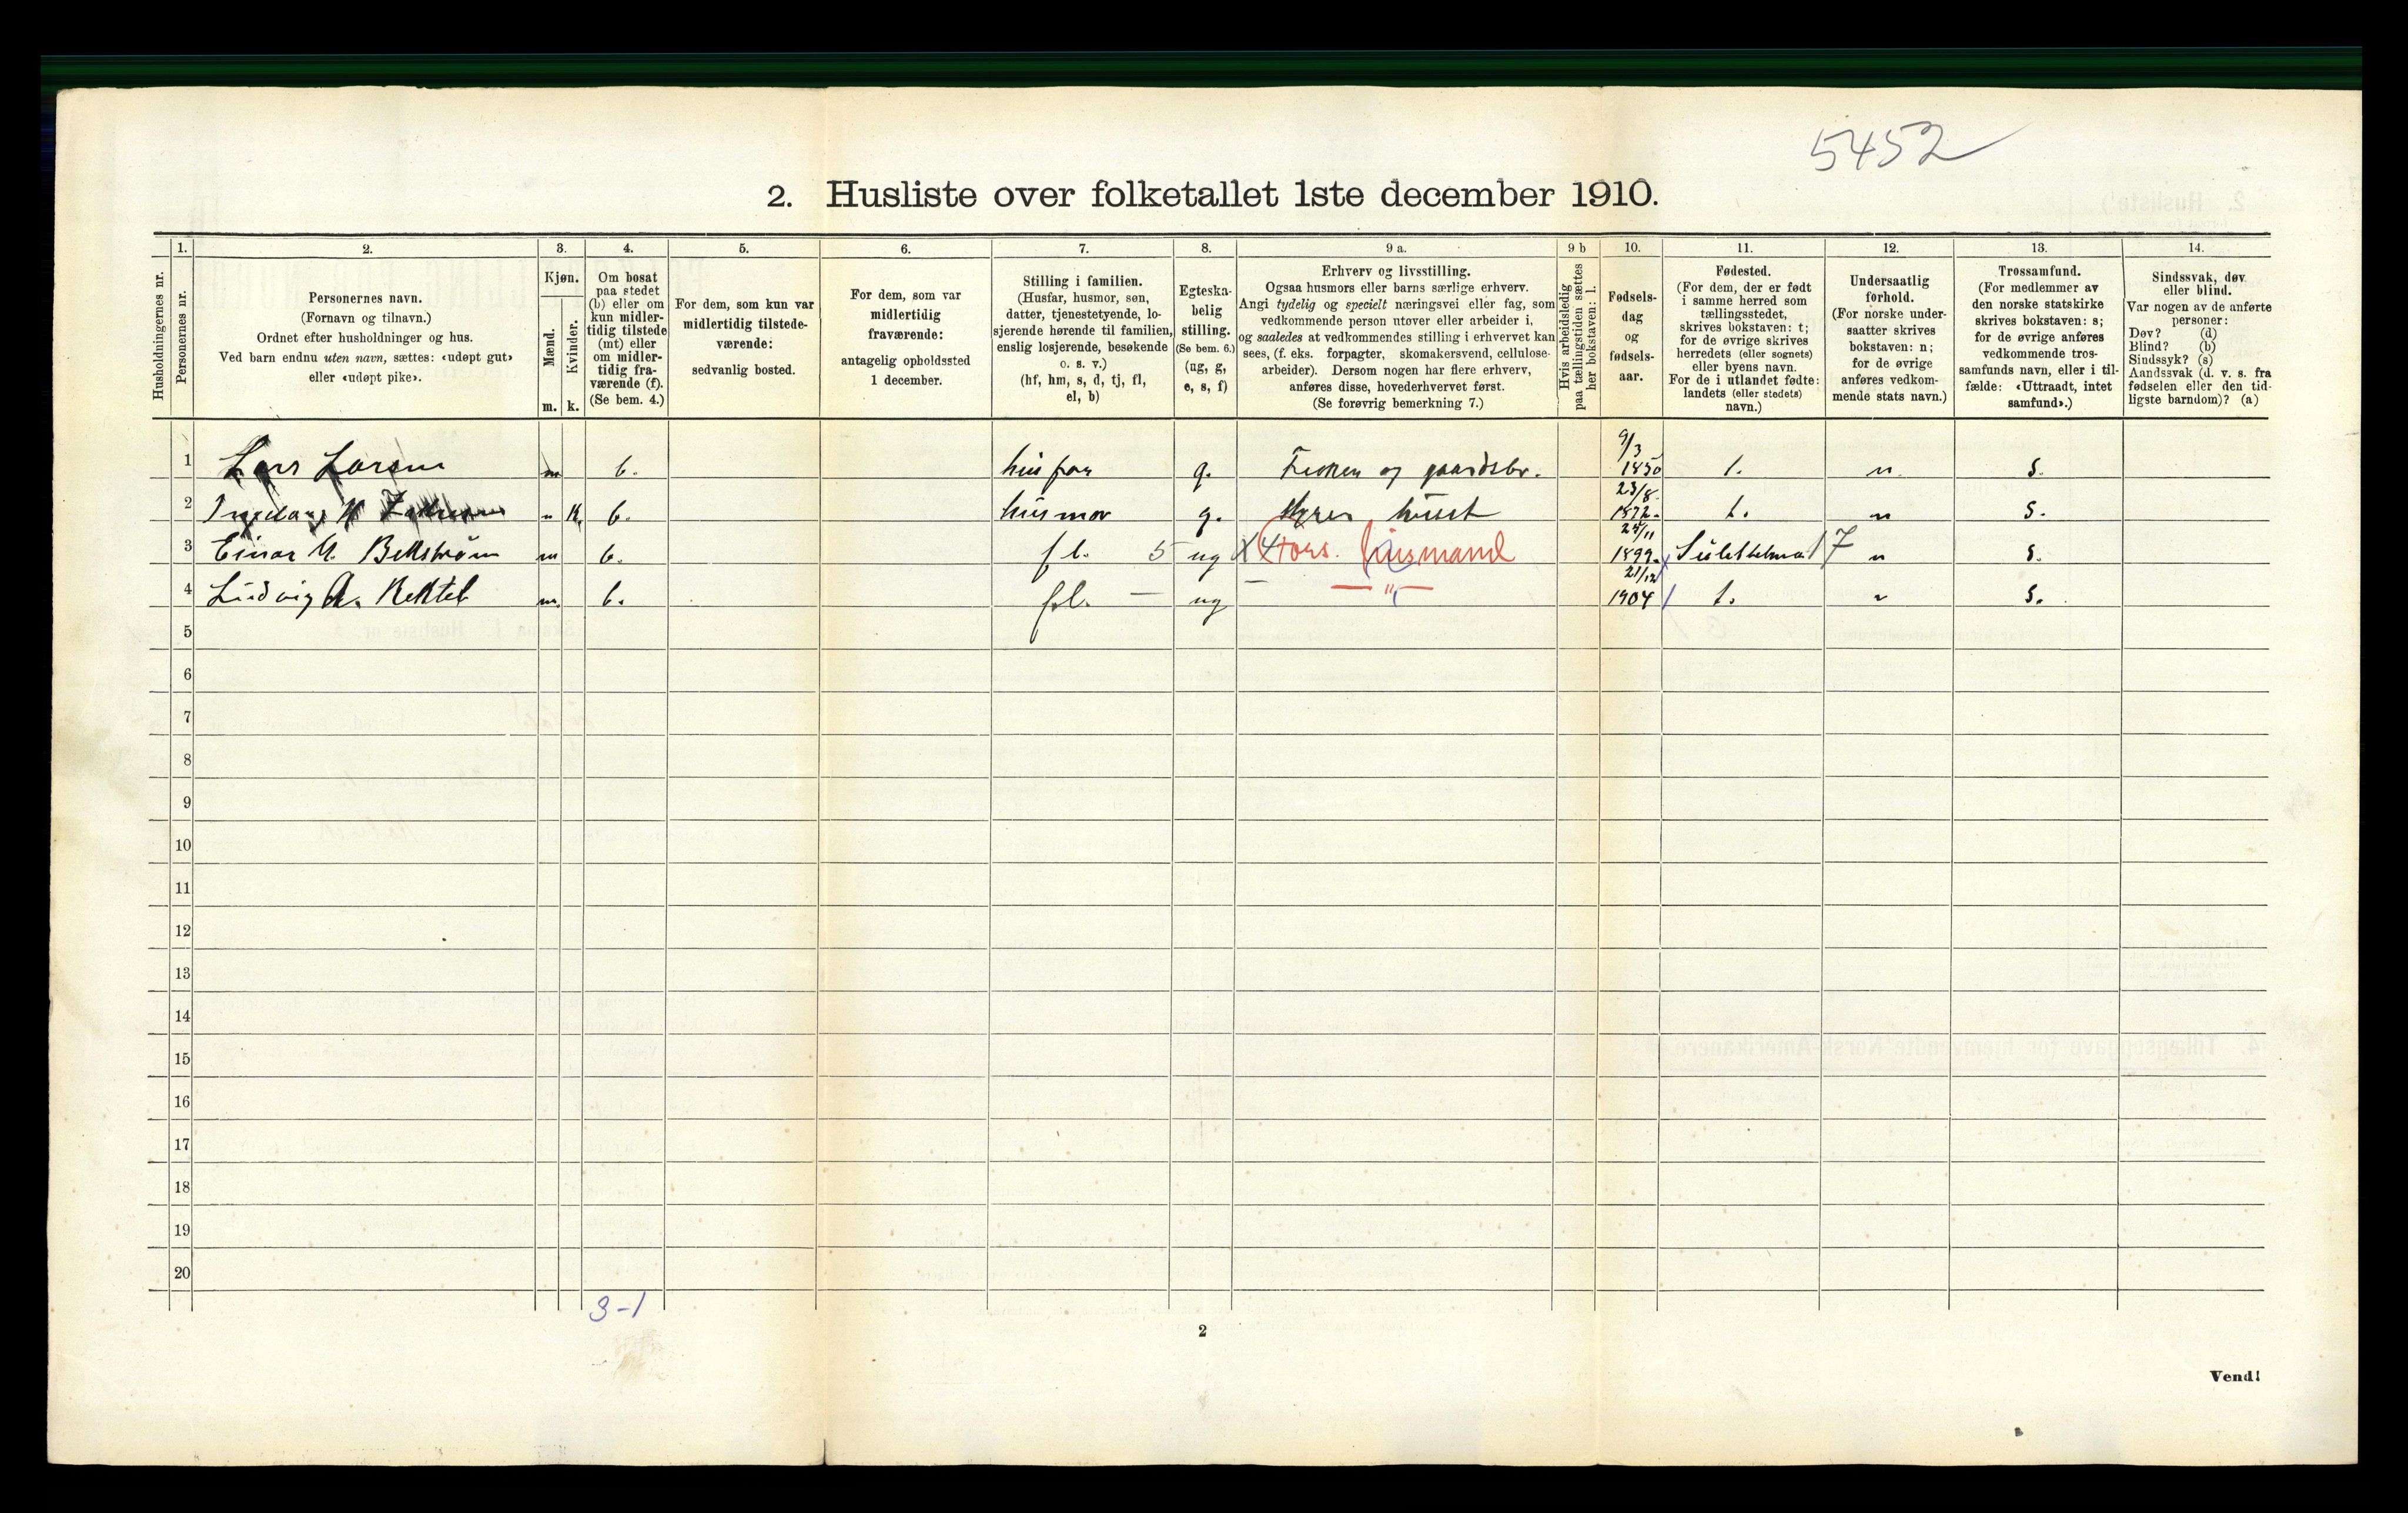 5452
2. Husliste over folketallet 1ste december 1910.
Husholdningernes nr.
1.
Personernes nr.
2.
Personernes navn.
(Fornavn og tilnavn.)
Ordnet efter husholdninger og hus.
Ved barn endnu uten navn, sættes: «udøpt gut»
eller «udøpt pike».
3.
Kjøn.
Mænd.
Kvinder.
m. k.
4.
Om bosat
paa stedet
(b) eller om
kun midler-
tidig tilstede
(mt) eller
om midler-
tidig fra-
værende (f).
(Se bem. 4.)
5.
For dem, som kun var
midlertidig tilstede-
værende:
sedvanlig bosted.
6.
For dem, som var
midlertidig
fraværende:
antagelig opholdssted
1 december.
7.
Stilling i familien.
(Husfar, husmor, søn,
datter, tjenestetyende, lo-
sjerende hørende til familien,
enslig losjerende, besøkende
o. s. v.)
(hf, hm, s, d, tj, fl,
el, b)
8.
Egteska-
belig
stilling.
(Se bem. 6.)
(ug, g,
e, s, f)
9 a.
Erhverv og livsstilling.
Ogsaa husmors eller barns særlige erhverv.
Angi tydelig og specielt næringsvei eller fag, som
vedkommende person utøver eller arbeider i,
og saaledes at vedkommendes stilling i erhvervet kan
sees, (f. eks. forpagter, skomakersvend, cellulose-
arbeider). Dersom nogen har flere erhverv,
anføres disse, hovederhvervet først.
(Se forøvrig bemerkning 7.)
9 b
Hvis arbeidsledig
paa tællingstiden sættes
her bokstaven: l.
10.
Fødsels-
dag
og
fødsels-
aar.
11.
Fødested.
(For dem, der er født
i samme herred som
tællingsstedet,
skrives bokstaven: t;
for de øvrige skrives
herredets (eller sognets)
eller byens navn.
For de i utlandet fødte:
landets (eller stedets)
navn.)
12.
Undersaatlig
forhold.
(For norske under-
saatter skrives
bokstaven: n;
for de øvrige
anføres vedkom-
mende stats navn.)
13.
Trossamfund.
(For medlemmer av
den norske statskirke
skrives bokstaven: s;
for de øvrige anføres
vedkommende tros-
samfunds navn, eller i til-
fælde: «Uttraadt, intet
samfund».)
14.
Sindssvak, døv
eller blind.
Var nogen av de anførte
personer:
Døv? (d)
Blind? (b)
Sindssyk? (s)
Aandssvak (d. v. s. fra
fødselen eller den tid-
ligste barndom)? (a)
1 Lars Larsen m b. husfar g. Fisker og gaardsbr. 9/3 1850 t. n. s.
2 k. b. husmor g. huset 23/8 1872 t. n s.
3 Einar M. Bekstrøm m b. fl. 5 ug X4 Fors. 24/11 1899 17 n s.
4 Ludvig A. m. b. fl. — ug — " — 21/12 1904 t. n s.
5
6
7
8
9
10
11
12
13
14
15
16
17
18
19
20
3-1
2
Vend!